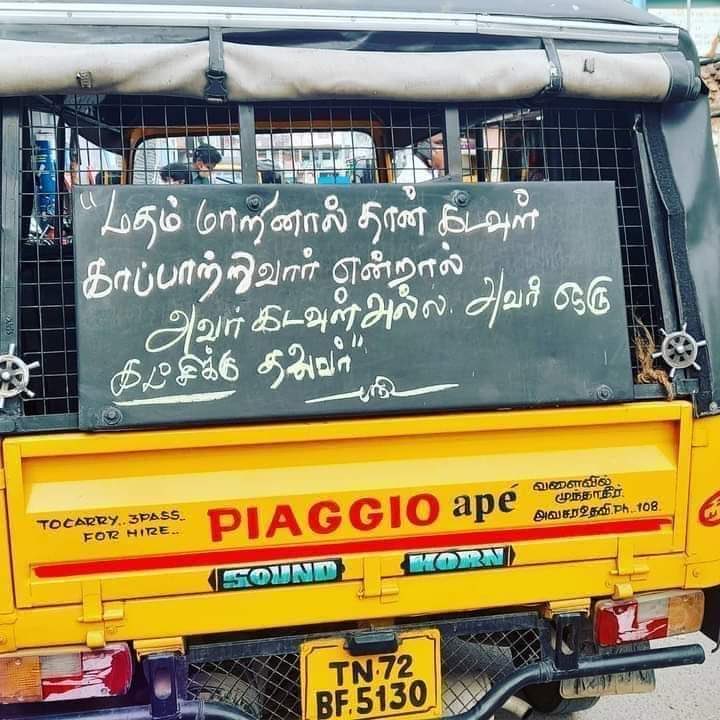 "மதம் மாறினால் தான் கடவுள்
காப்பாற்றுவார் என்றால்
அவர் கடவுள் அல்ல. அவர் ஒரு
கட்சிக்கு தலைவர்"
TO CARRY.. 3 PASS..
FOR HIRE..
PIAGGIO apé
வளைவில்
முந்தாதீர்.
அவசரஉதவி.Ph..108.
SOUND HORN
TN.72
BF.5130